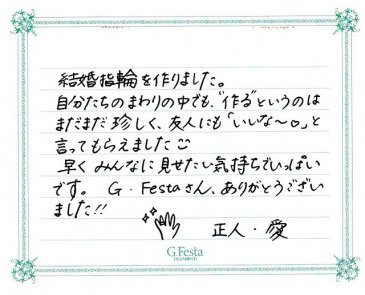 結婚指輪を作りました。
自分たちのまわりの中でも、"作る"というのは
まだまだ珍しく、友人にも「いいな〜♡」と
言ってもらえました☺
早くみんなに見せたい気持ちでいっぱい
です。 G・Festaさん、ありがとうござい
ました!!
正人・愛
G.Festa
DIAMOND